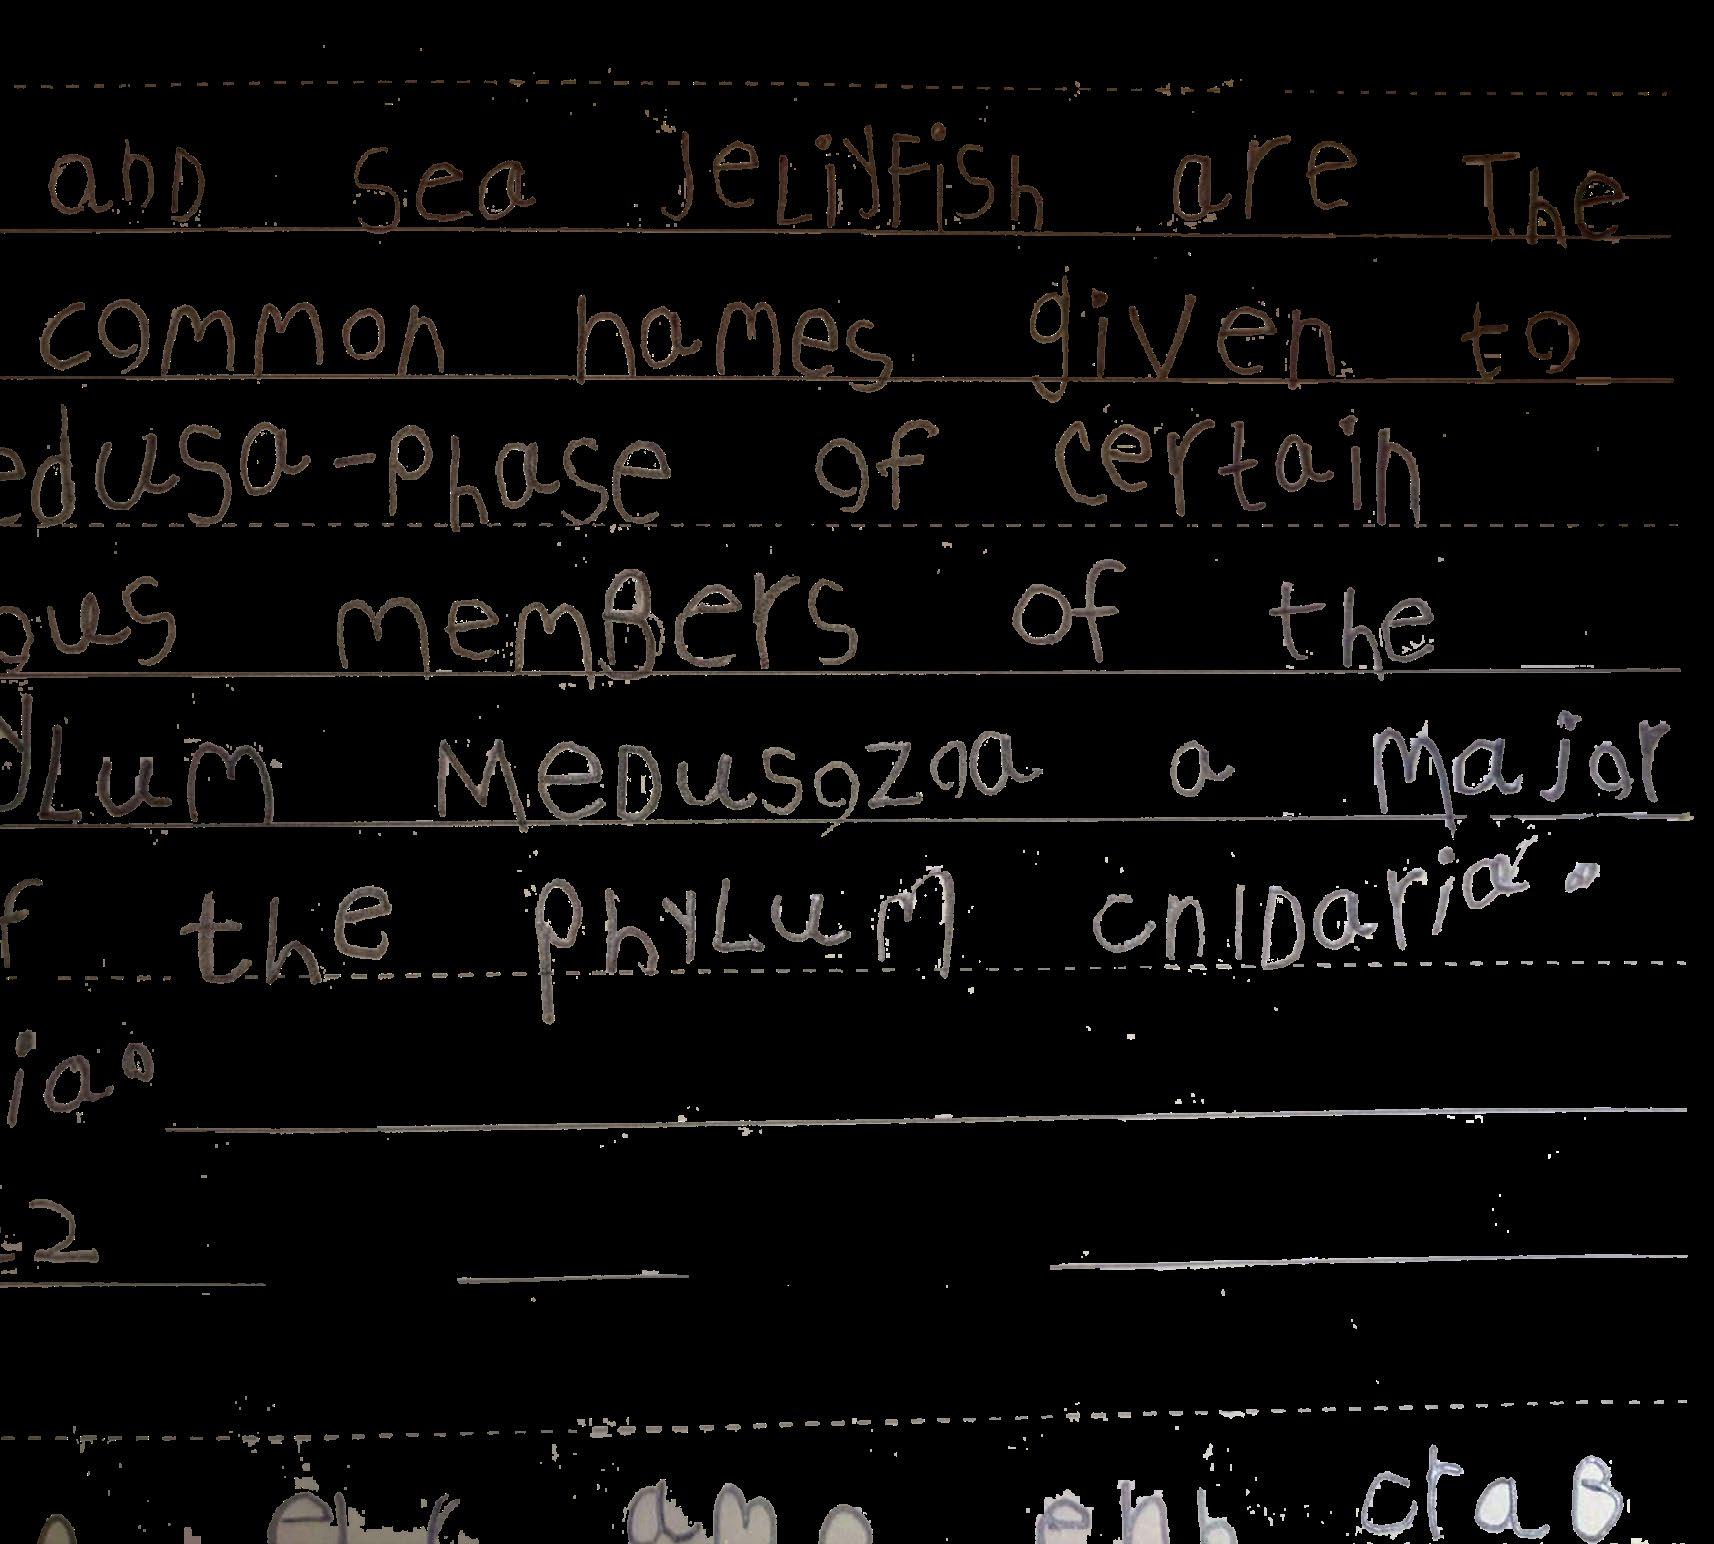 and sea jeLiyFish are The
common names given to
edusa-phase of certain
ous memBers of the
yLum MeDusozoa a major
f the phyLum cnIDaria.
ia.
2
craB